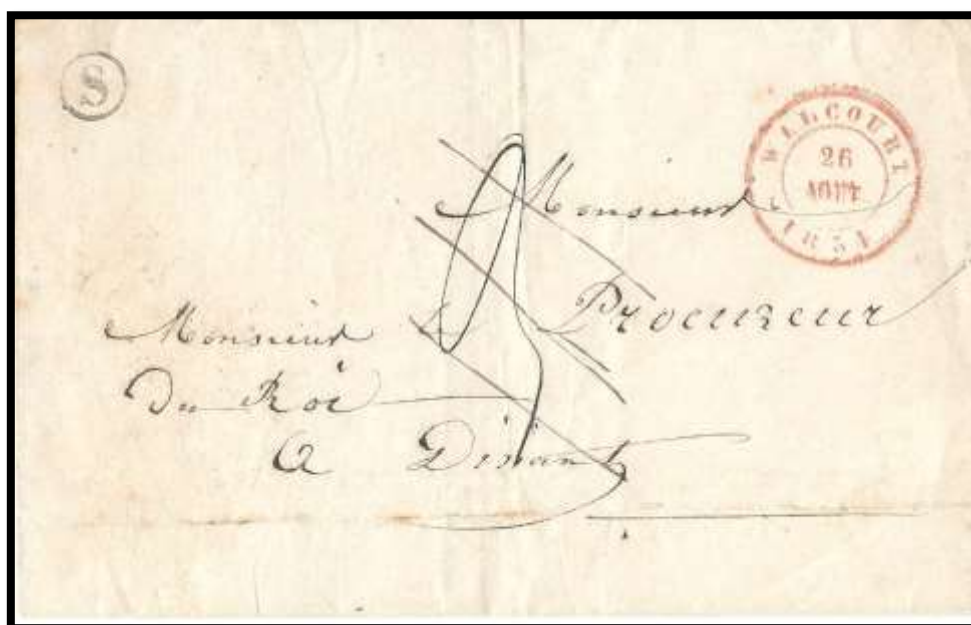 S
WALCOURT
26
AOUT
1851
Monsieur
Monsieur Le Procureur
du Roi
a Dinant